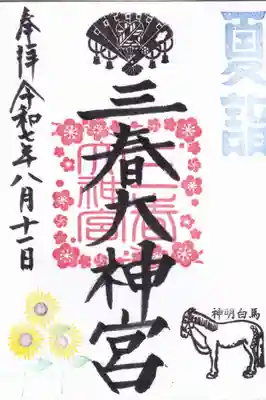 夏詣
三春大神宮
三春
大神宮
奉拝 令和七年八月十一日
神明白馬